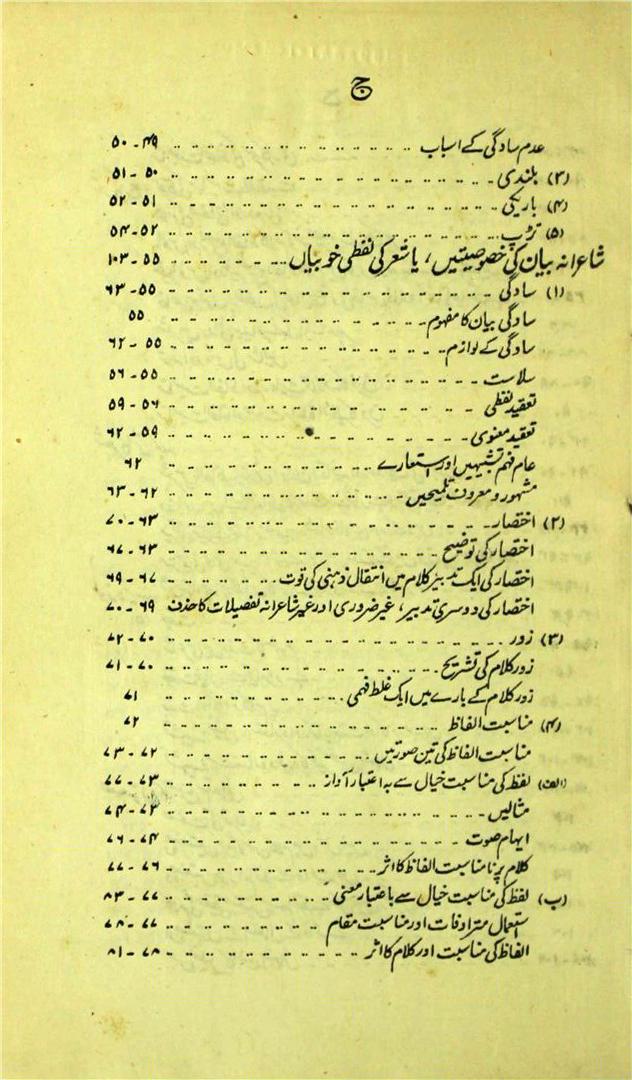 ج
عدم سادگی کے اسباب ۔۔۔۔۔۔ ۴۹ - ۵۰
(۳) بلندی ۔۔۔۔۔۔ ۵۰ - ۵۱
(۴) باریکی ۔۔۔۔۔۔ ۵۱ - ۵۲
(۵) تڑپ ۔۔۔۔۔۔ ۵۲ - ۵۴
شاعرانہ بیان کی خصوصیتیں، یا شعر کی لفظی خوبیاں ۔۔۔۔۔۔ ۵۵ - ۱۰۳
(۱) سادگی ۔۔۔۔۔۔ ۵۵ - ۶۳
سادگی بیان کا مفہوم ۔۔۔۔۔۔ ۵۵
سادگی کے لوازم ۔۔۔۔۔۔ ۵۵ - ۶۲
سلاست ۔۔۔۔۔۔ ۵۵ - ۵۶
تعقید لفظی ۔۔۔۔۔۔ ۵۶ - ۵۹
تعقید معنوی ۔۔۔۔۔۔ ۵۹ - ۶۲
عام فہم تشبیہیں اور استعارے ۔۔۔۔۔۔ ۶۲
مشہور و معروف تلمیحیں ۔۔۔۔۔۔ ۶۲ - ۶۳
(۲) اختصار ۔۔۔۔۔۔ ۶۳ - ۷۰
اختصار کی توضیح ۔۔۔۔۔۔ ۶۳ - ۶۷
اختصار کی ایک تدبیر کلام میں انتقال ذہنی کی قوت ۔۔۔۔۔۔ ۶۷ - ۶۹
اختصار کی دوسری تدبیر، غیر ضروری اور غیر شاعرانہ تفصیلات کا حذف ۶۹ - ۷۰
(۳) زور ۔۔۔۔۔۔ ۷۰ - ۷۲
زور کلام کی تشریح ۔۔۔۔۔۔ ۷۰ - ۷۱
زور کلام کے بارے میں ایک غلط فہمی ۔۔۔۔۔۔ ۷۱
(۴) مناسبت الفاظ ۔۔۔۔۔۔ ۷۲
مناسبت الفاظ کی تین صورتیں ۔۔۔۔۔۔ ۷۲ - ۷۳
(الف) لفظ کی مناسبت خیال سے بہ اعتبار آواز ۔۔۔۔۔۔ ۷۳ - ۷۷
مثالیں ۔۔۔۔۔۔ ۷۳ - ۷۴
ایہام صوت ۔۔۔۔۔۔ ۷۴ - ۷۶
کلام پر نا مناسبت الفاظ کا اثر ۔۔۔۔۔۔ ۷۶ - ۷۷
(ب) لفظ کی مناسبت خیال سے باعتبار معنی ۔۔۔۔۔۔ ۷۷ - ۸۳
استعمال مترادفات اور مناسبت مقام ۔۔۔۔۔۔ ۷۷ - ۷۸
الفاظ کی مناسبت اور کلام کا اثر ۔۔۔۔۔۔ ۷۸ - ۸۱